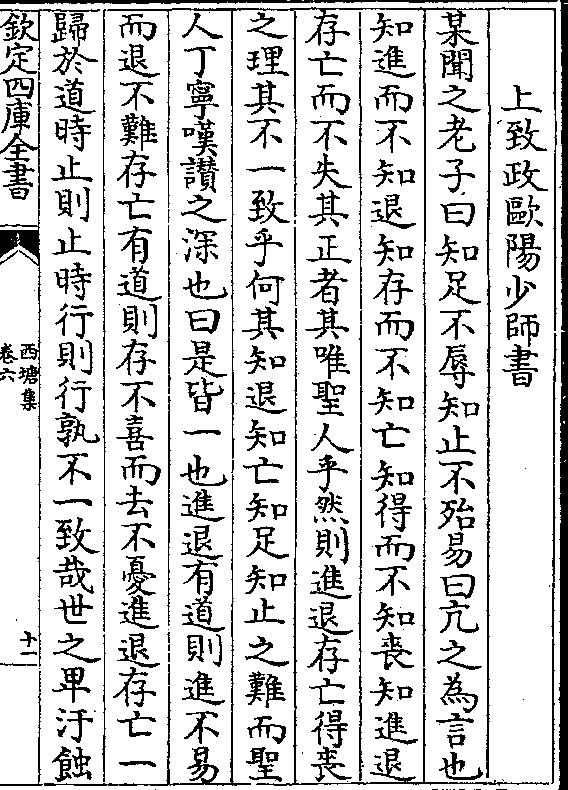 上致政歐陽少師書
某聞之老子曰知足不辱知止不殆易曰亢之為言也
知進而不知退知存而不知亡知得而不知喪知進退
存亡而不失其正者其唯聖人乎然則進退存亡得喪
之理其不一致乎何其知退知亡知足知止之難而聖
人丁寧嘆讚之深也曰是皆一也進退有道則進不易
而退不難存亡有道則存不喜而去不憂進退存亡一
歸於道時止則止時行則行孰不一致哉世之卑汙蝕
欽定四庫全書
西塘集
卷六
十一